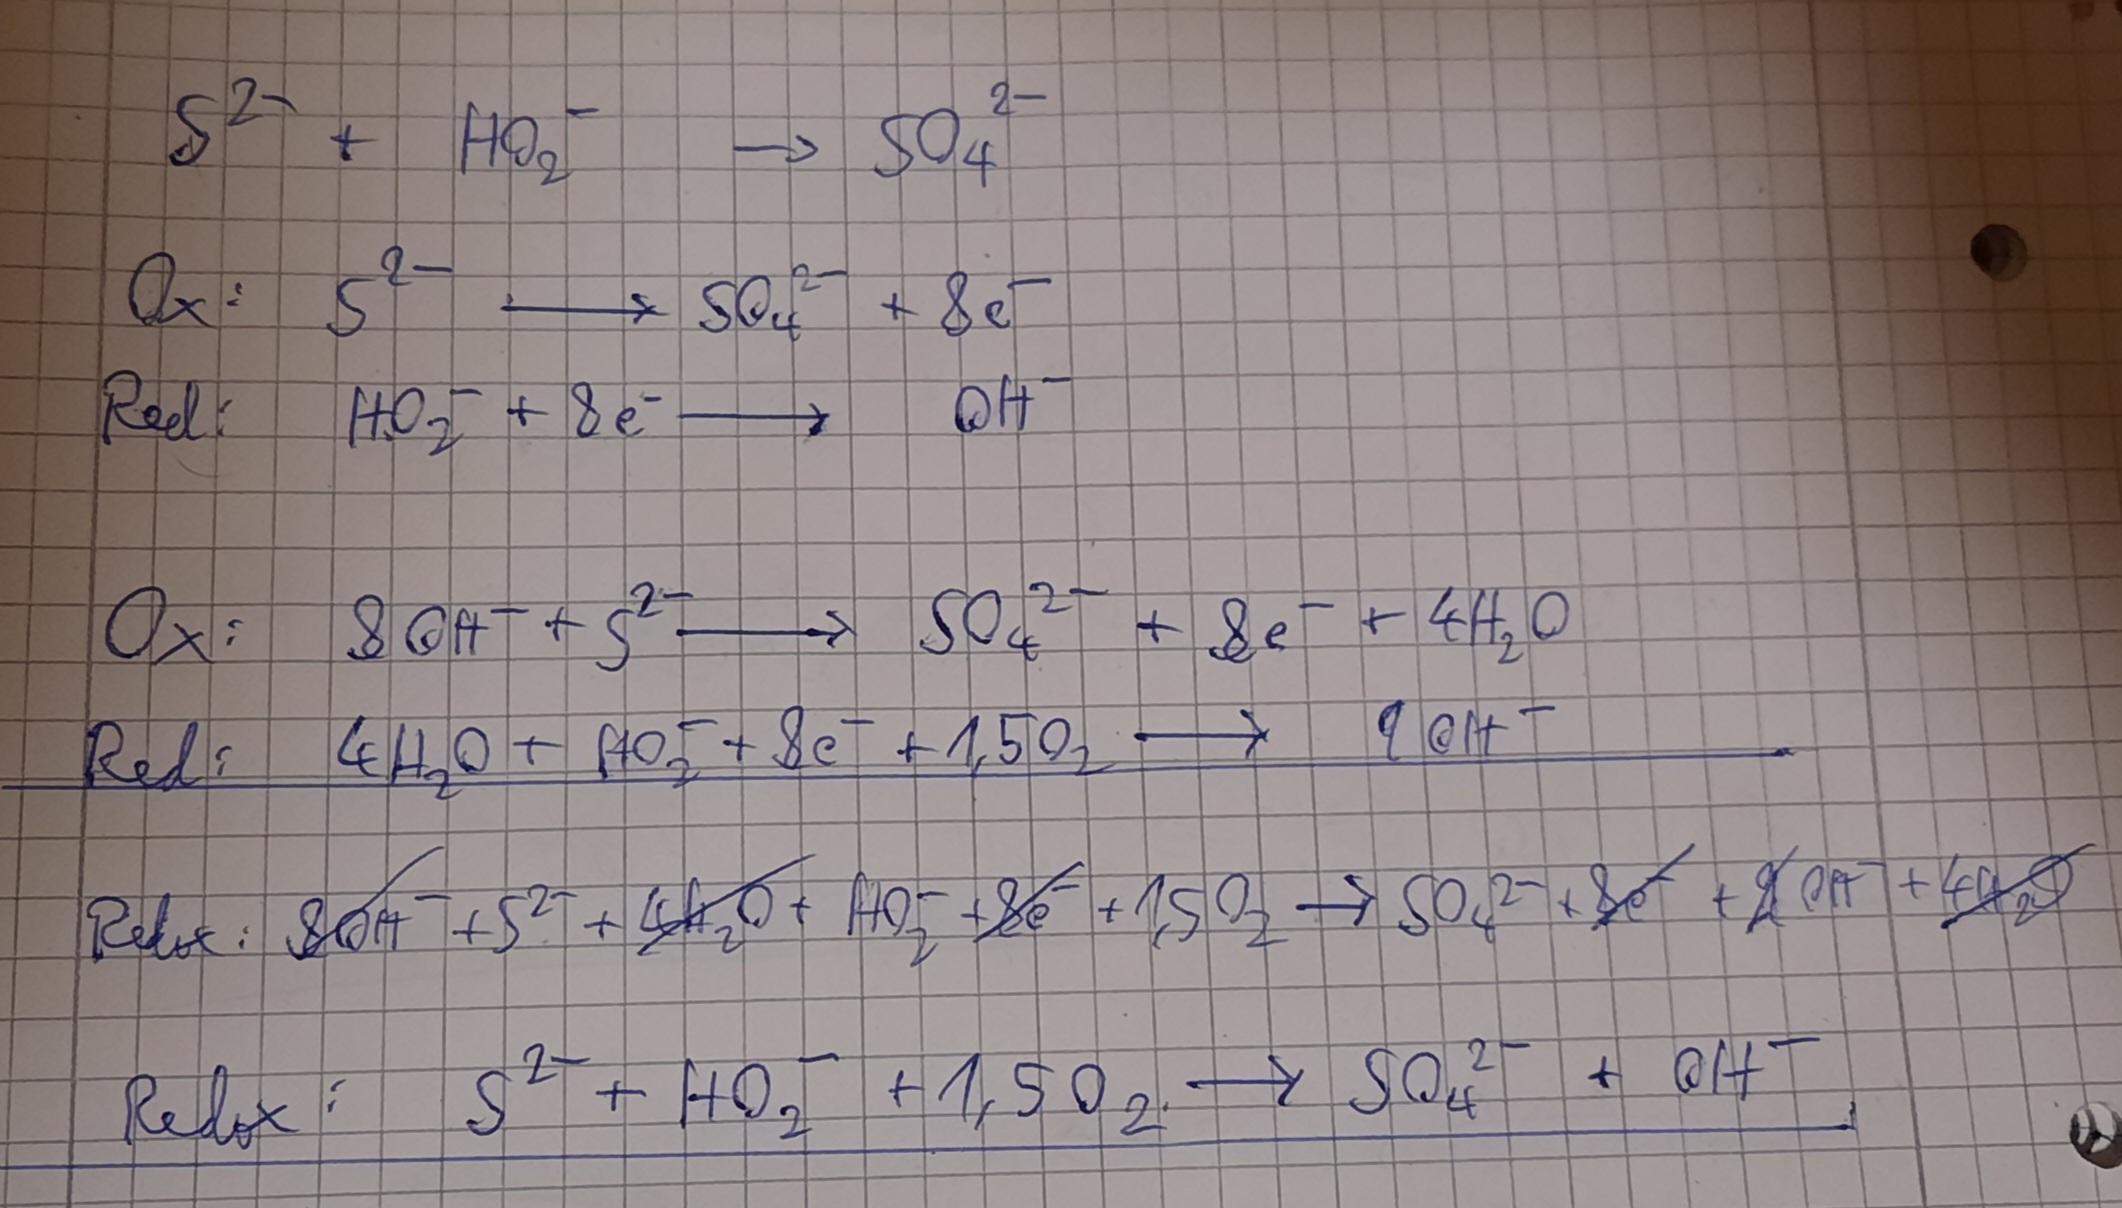 S²⁻ + HO₂⁻ → SO₄²⁻
Ox: S²⁻ → SO₄²⁻ + 8e⁻
Red: HO₂⁻ + 8e⁻ → OH⁻
Ox: 8OH⁻ + S²⁻ → SO₄²⁻ + 8e⁻ + 4H₂O
Red: 4H₂O + HO₂⁻ + 8e⁻ + 1,5O₂ → 9OH⁻
Redox: 8OH⁻ + S²⁻ + 4H₂O + HO₂⁻ + 8e⁻ + 1,5O₂ → SO₄²⁻ + 8e⁻ + 9OH⁻ + 4H₂O
Redox: S²⁻ + HO₂⁻ + 1,5O₂ → SO₄²⁻ + OH⁻